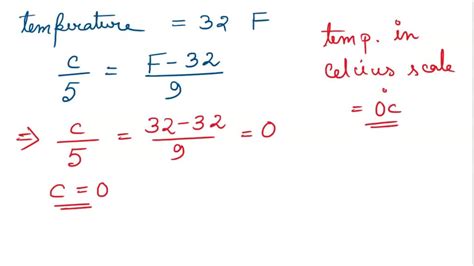 temperature = 32 F
c/5 = F-32/9
⇒ c/5 = 32-32/9 = 0
c = 0
temp. in
celcius scale
= 0°c